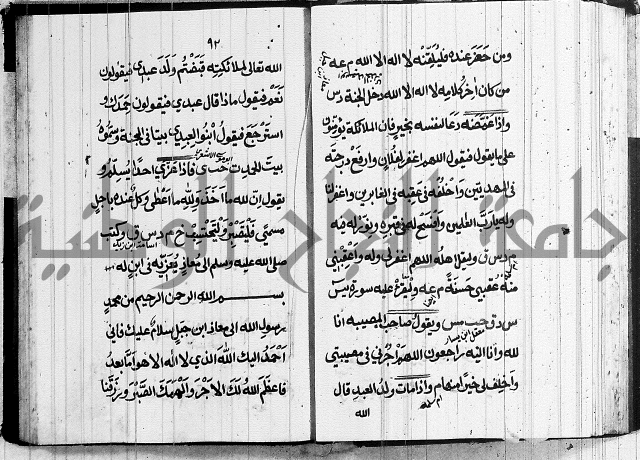 ومن حضر عنده فليلقنه لا اله الا الله م عه
من كان اخر كلامه لا اله الا الله دخل الجنة د س
واذا غمضه دعا لنفسه بخير فان الملائكة يؤمنون
على ما يقول فيقول اللهم اغفر لفلان وارفع درجته
فى المهديين واخلفه فى عقبه فى الغابرين واغفر لنا
وله يا رب العالمين وافسح له فى قبره ونور له فيه
م د س ق وليقل اهله اللهم اغفر لى وله واعقبني
منه عقبى حسنة م عه وليقرء عليه سورة يس
س د ق حب مس ويقول صاحب المصيبه انا
لله وانا اليه راجعون اللهم اجرنى في مصيبتي
واخلف لى خيرا منها م واذا مات ولد العبد قال
الله
٩٢
الله تعالى لملائكته قبضتم ولد عبدى فيقولون
نعم فيقول ماذا قال عبدى فيقولون حمدك و
استرجع فيقول ابنوا لعبدى بيتا فى الجنة وسموه
بيت الحمد ت حب ى فاذا عزى احدا يسلم و
يقول ان لله ما اخذ ولله ما اعطى وكل عنده باجل
مسمى فلتصبر ولتحتسب خ م د س ق وكتب
صلى الله عليه وسلم الى معاذ يعزيه فى ابن له
بسم الله الرحمن الرحيم من محمد
رسول الله الى معاذ ابن جبل سلام عليك فانى
احمد اليك الله الذى لا اله الا هو اما بعد
فاعظم الله لك الاجر والهمك الصبر ورزقنا
جامعة النجاح الوطنية